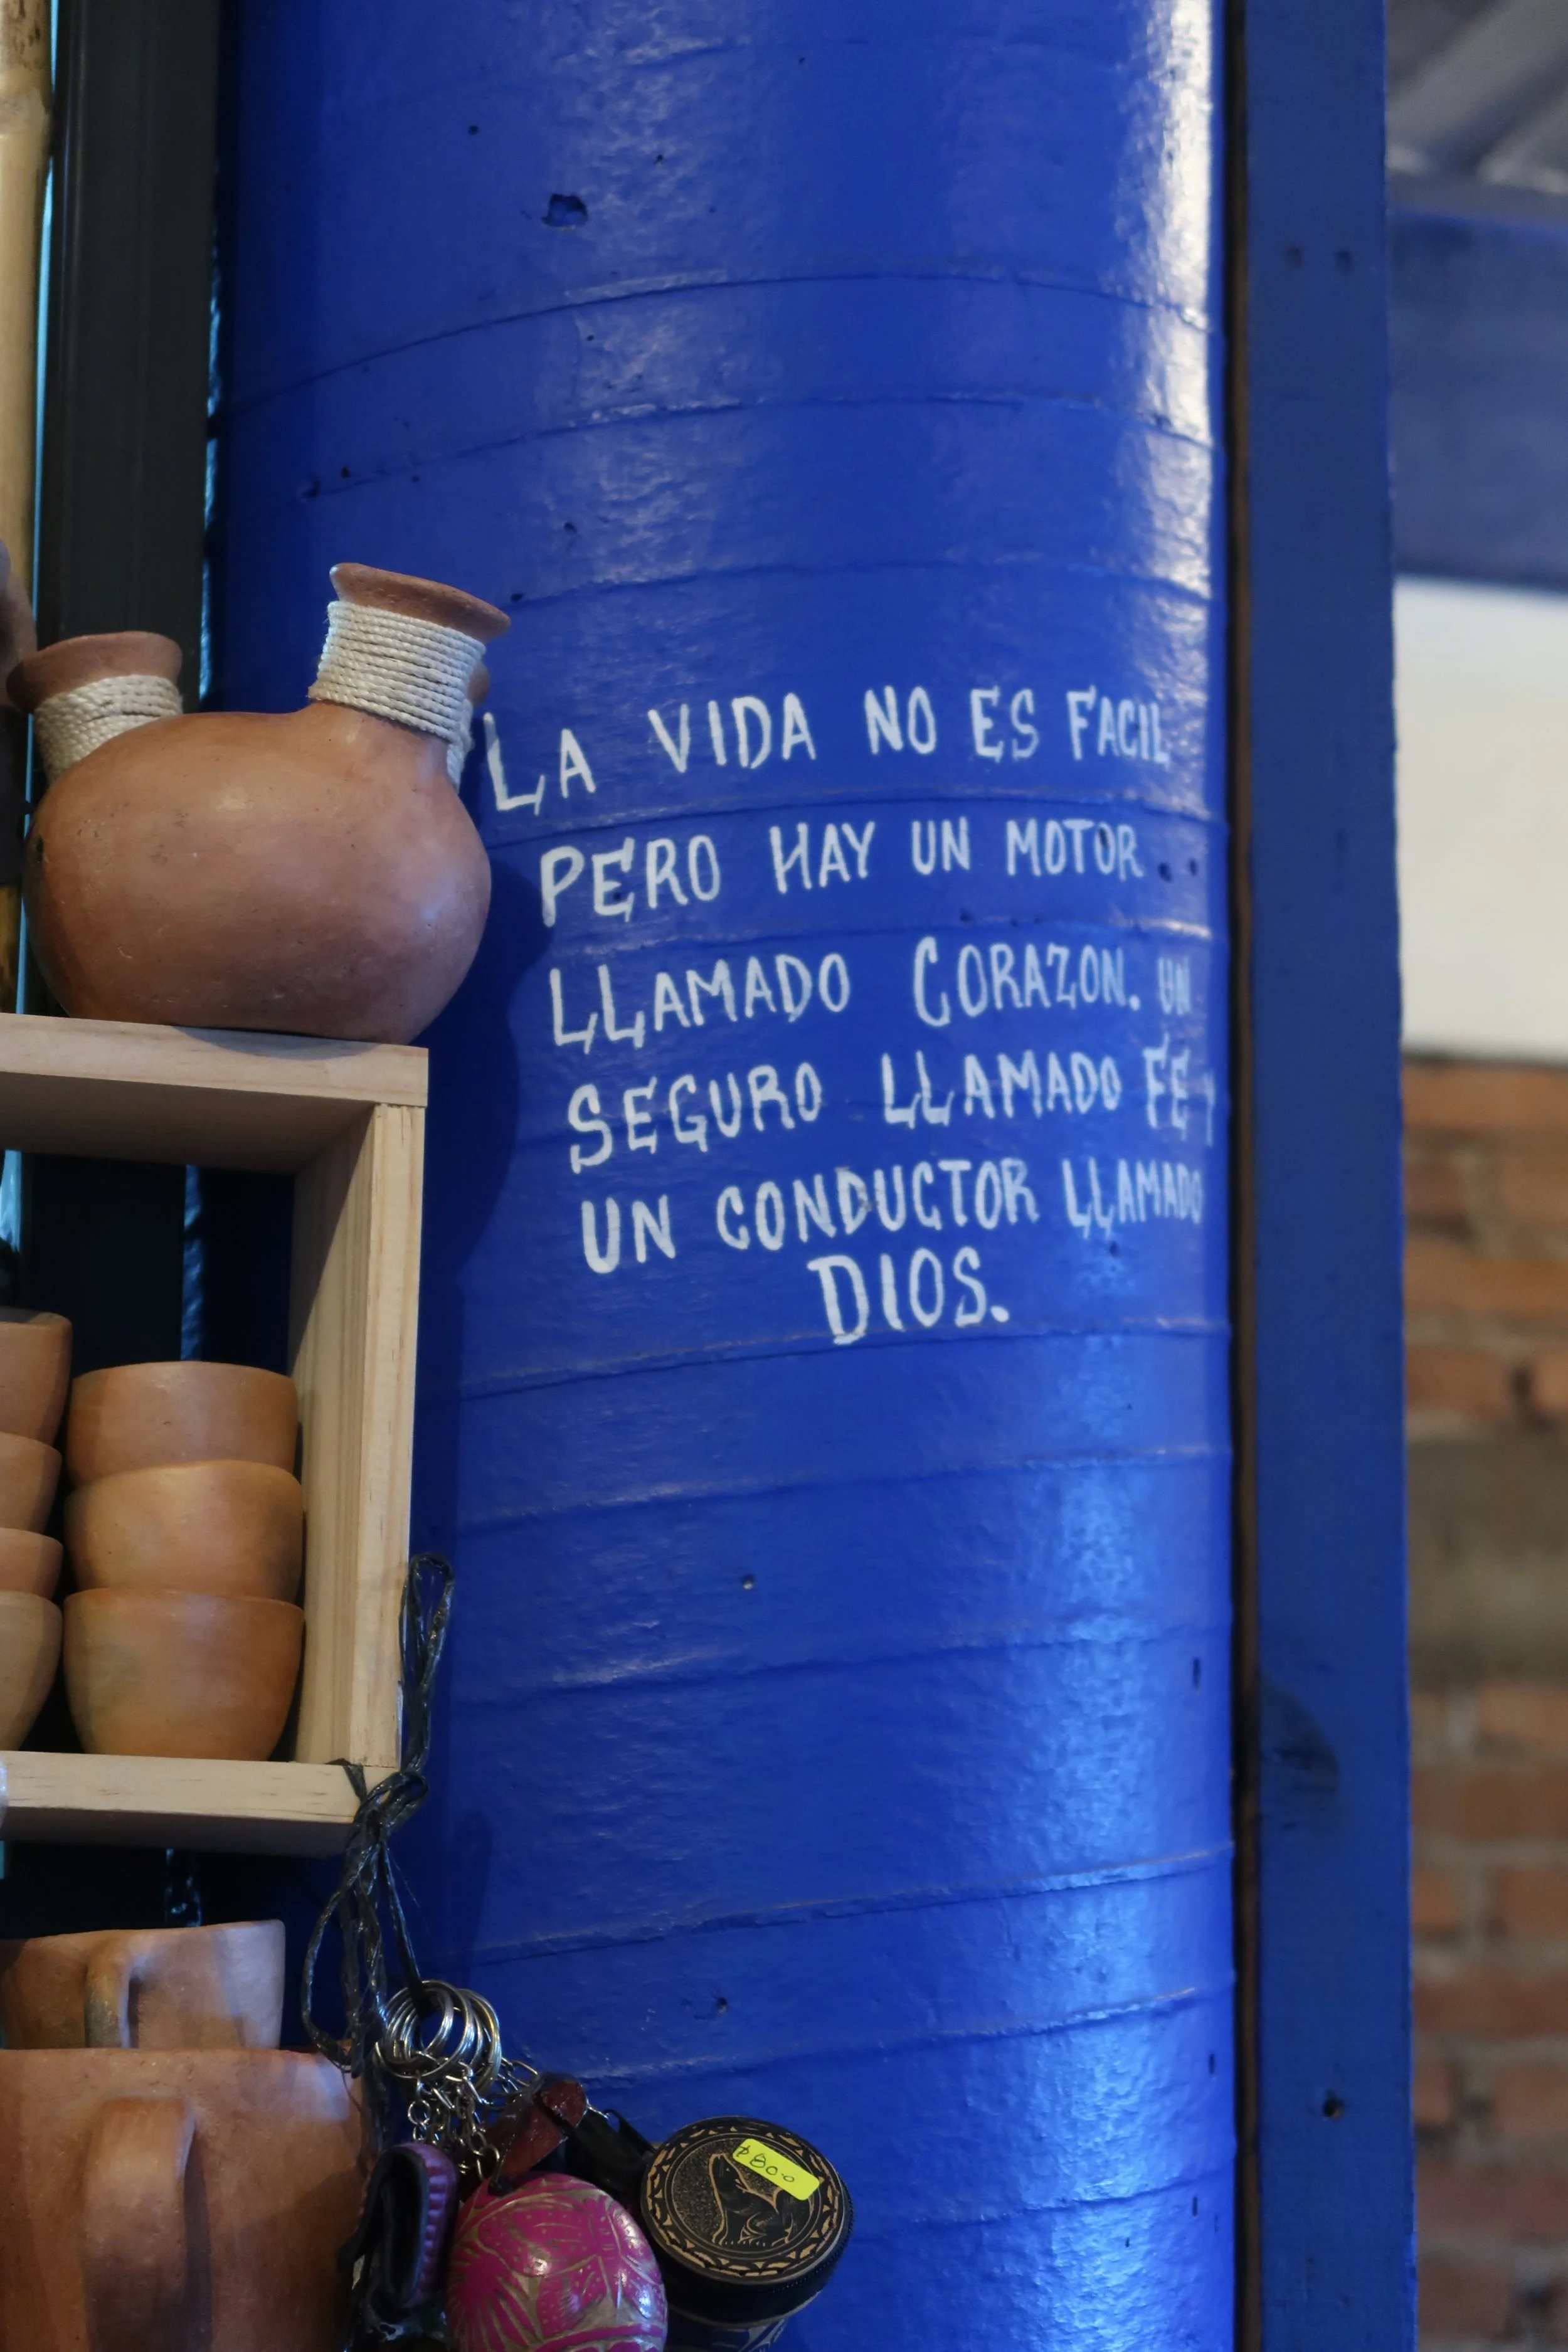 LA VIDA NO ES FACIL
PERO HAY UN MOTOR
LLAMADO CORAZON. UN
SEGURO LLAMADO FE Y
UN CONDUCTOR LLAMADO
DIOS.
$80.0